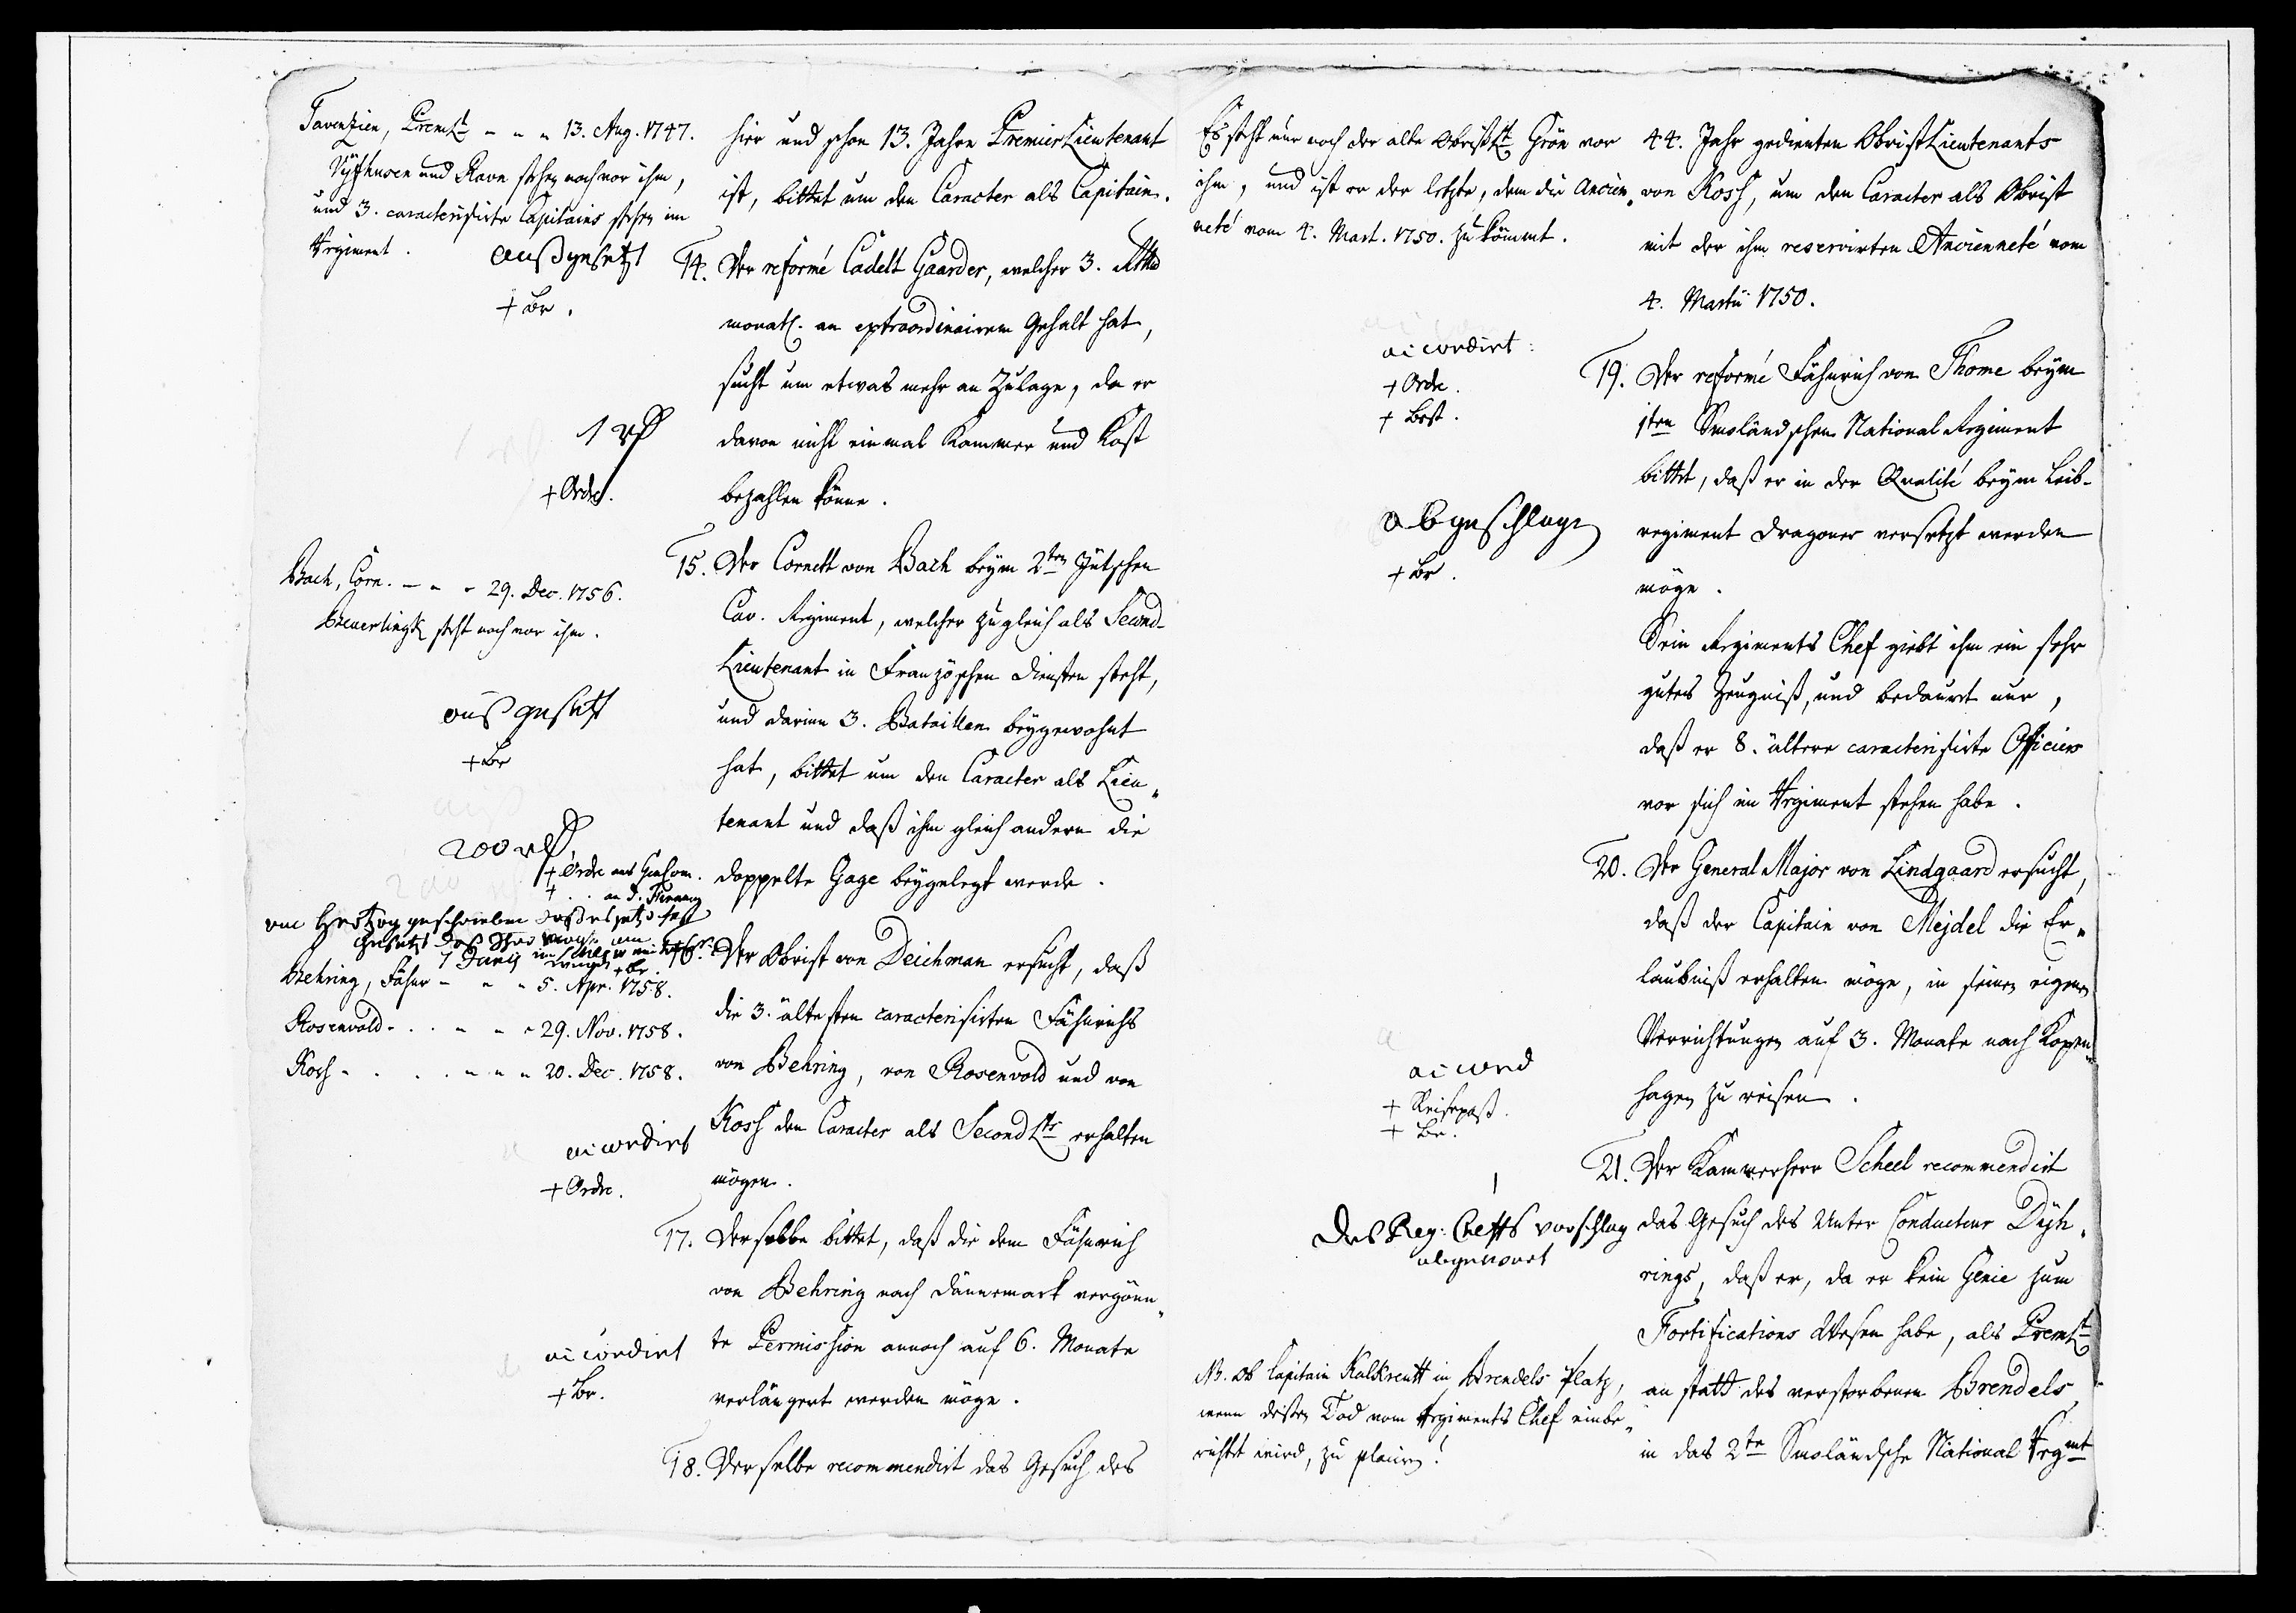 Tavenzien, PremLt - - - 13. Aug. 1747.
Nyfhusen und Ravn stehen noch vor ihm,
und 3. caracterisirte Capitains stehen im
Regiment.
außgesetzt
+ Br.
1 rß
+ Ordre.
Bach, Corn. - - - 29. Dec. 1756.
steht noch vor ihm.
außgesetzt
+ Br
200 rß
+ Ordre ans
geschrieben
Behring, Fähnr - - - 5. Apr. 1758.
Rosenvold - - - - - 29. Nov. 1758.
Koss - - - - - - 20. Dec. 1758.
accordirt
+ Ordre.
accordirt
+ Br.
hier und schon 13. Jahre PremierLieutenant
ist, bittet um den Caracter als Capitain.
14. Der reformé Cadett Gaarder, welcher 3. Rthlr
monatl. an extraordinairem Gehalt hat,
sucht um etwas mehr an Zulage, da er
davon nicht einmal Kammer und Kost
bezahlen könne.
15. Der Cornett von Bach beym 2ten Jütschen
Cav. Regiment, welcher zugleich als Second-
Lieutenant in Französchen Diensten steht,
und darinn 3. Bataillen beygewohnt
hat, bittet um den Caracter als Lieu„
tenant und daß ihm gleich andern die
doppelte Gage beygelegt werde.
16. Der Obrist von Deichman ersucht, daß
die 3. ältesten caracterisirten Fähnrichs
von Behring, von Rosenvold und von
Koss den Caracter als SecondLts erhalten
mögen.
17. Derselbe bittet, daß die dem Fähnrich
von Behring nach Dännemark vergönn„
te Permission annoch auf 6. Monate
verlängert werden möge.
18. Derselbe recommendirt das Gesuch des
Es steht nur noch der alte ObristLt Grön vor
ihm, und ist er der letzte, dem die Ancien„
neté vom 4. Mart. 1750. zukömmt.
accordirt:
+ Ordre.
+ Best.
abgeschlagen
+ Br.
accord
+ Reisepaß.
+ Br.
Des Reg: Cheffs vorschlag
abgewart
NB. Ob Capitain Kalkreutt in Brendels Platz,
wenn dessen Tod vom Regiments Chef einbe„
richtet wird, zu placiren!
44. Jahr gedienten ObristLieutenants
von Koss, um den Caracter als Obrist
mit der ihm reservirten Ancienneté vom
4. Martii 1750.
19. Der reformé Fähnrich von Thome beym
1sten Smoländschen National Regiment
bittet, daß er in der Qualité beym Leib-
regiment Dragoner versetzt werden
möge.
Sein Regiments Chef giebt ihm ein sehr
gutes Zeugniß, und bedauret nur,
daß er 8. ältere caracterisirte Officiers
vor sich im Regiment stehen habe.
20. Der General Major von Lindgaard ersucht,
daß der Capitain von Mejdel die Er„
laubniß erhalten möge, in seinen eigenen
Verrichtungen auf 3. Monate nach Kopen„
hagen zu reisen.
21. Der Kammerherr Scheel recommendirt
das Gesuch des Unter Conducteur Dyh„
rings, daß er, da er kein Genie zum
Fortifications Wesen habe, als PremLt
an statt des verstorbenen Brendels
in das 2te Smoländsche National Regmt